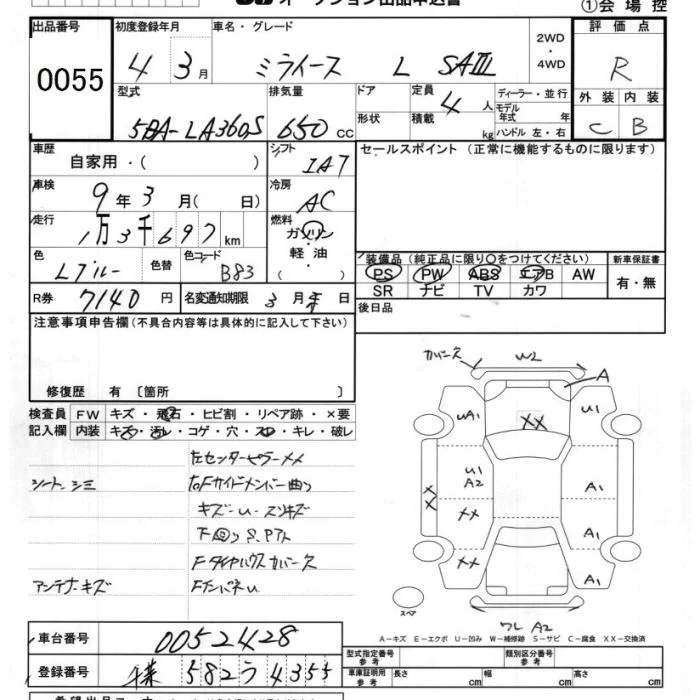 オークション出品申込書
①会場控
出品番号 初度登録年月 車名・グレード 2WD・4WD 評価点
0055 4 3月 ミライース L SAⅢ R
型式 排気量 ドア 定員 ディーラー・並行 外装 内装
5BA-LA360S 650 cc 形状 積載 4人 モデル年式 年 C B
kg ハンドル 左・右
車歴 自家用・( ) シフト IAT セールスポイント(正常に機能するものに限ります)
車検 9年3月(日) 冷房 AC
走行 1万3千697km 燃料 ガソリン・軽油・( )
色 Lブルー 色替 色コード B83
装備品(純正品に限り○をつけてください) 新車保証書
PS PW ABS エアB AW 有・無
SR ナビ TV カワ
R券 7140円 名変通知期限 3月末日 後日品
注意事項申告欄(不具合内容等は具体的に記入して下さい)
修復歴 有 〔箇所 〕
検査員 FW キズ・飛石・ヒビ割・リペア跡・×要
記入欄 内装 キズ・汚レ・コゲ・穴・スレ・キレ・破レ
左センターピラーメメ
シート シミ 右Fサイドメンバー曲り
キズ・U・スリキズ
下回り S.Pアト
アンテナキズ
カバース W2
A
UA1 U1
XX
U1
A2 A1
XX XX A1
XX A1
スペア
ワレ A2
A-キズ E-エクボ U-凹み W-補修跡 S-サビ C-腐食 XX-交換済
車台番号 0052428
登録番号 582 う 4355
型式指定番号 参考 類別区分番号 参考
車庫証明用 参考 長さ cm 幅 cm 高さ cm
希望出品コーナー